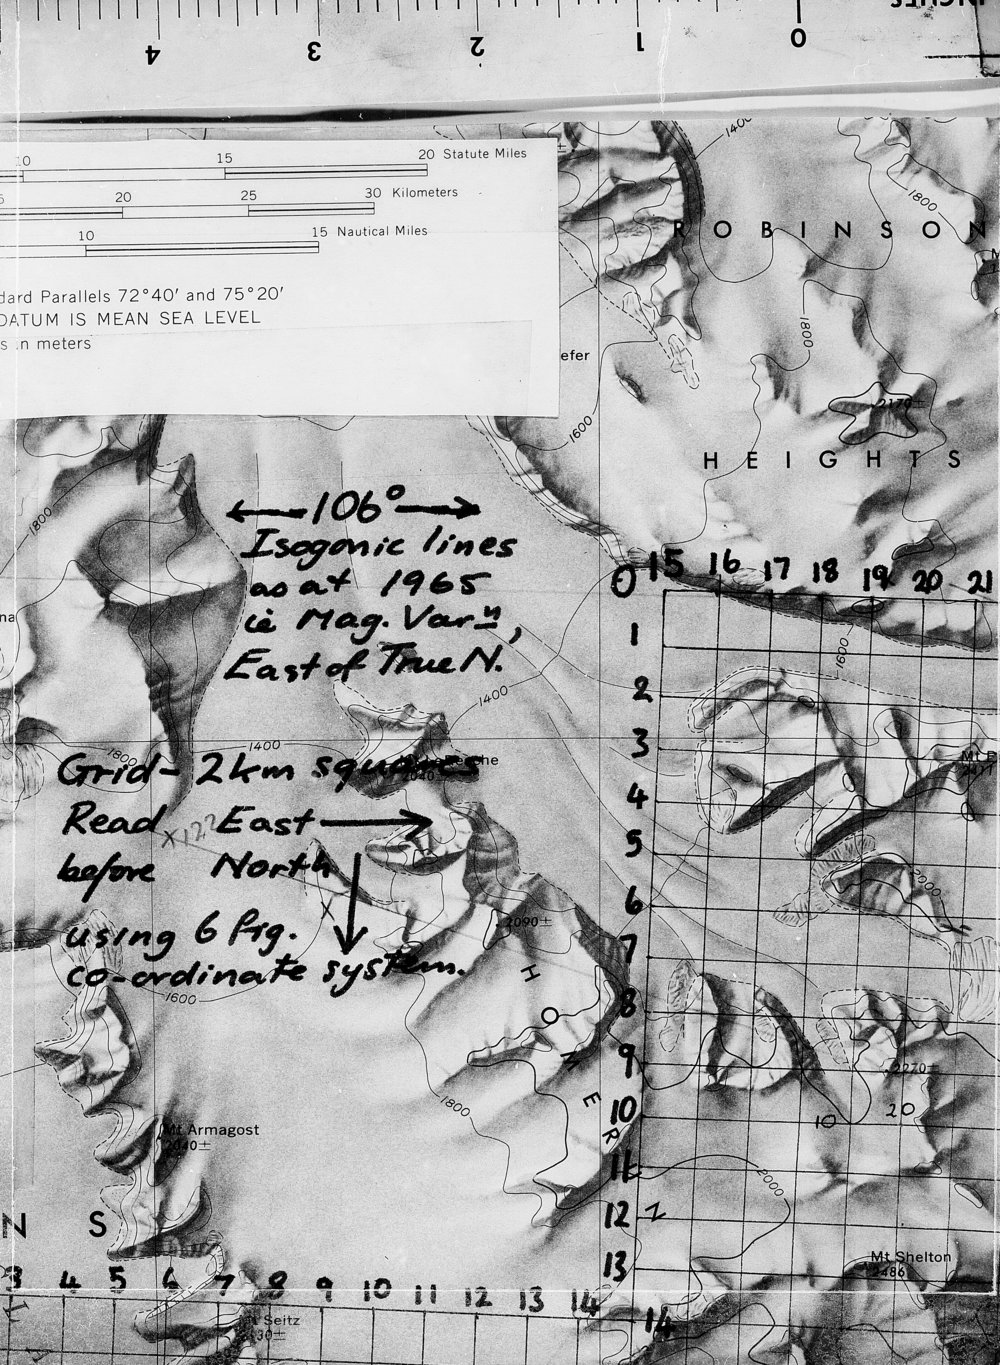 INCHES
4 3 2 1 0
10 15 20 Statute Miles
20 25 30 Kilometers
10 15 Nautical Miles
dard Parallels 72°40′ and 75°20′
DATUM IS MEAN SEA LEVEL
s in meters
1400
1800
ROBINSON
1800
efer
1600
2179±
HEIGHTS
1800
←106°→
Isogonic lines
as at 1965
ie Mag. Varⁿ,
East of True N.
0 15 16 17 18 19 20 21
1
1600
2
1400
1400
3
1800
Grid- 2km squares
2040
Mt
2417
4
Read East →
X 122
5
before North
2000
6
X
2090±
using 6 fig.
7
co-ordinate system.
1600
8
9
2270±
1800
10
10 20
Mt Armagost
2040±
HOMER
11
2000
12
N
N S
13
Mt Shelton
2486
3 4 5 6 7 8 9 10 11 12 13 14
14
Seitz
30±